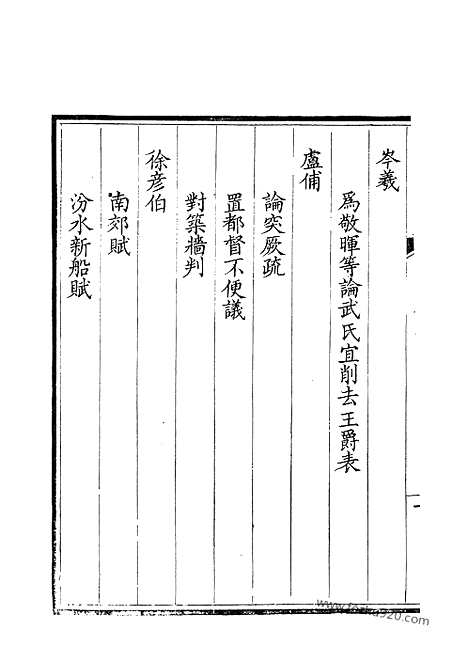 岑羲
爲敬暉等論武氏宜削去王爵表
盧俌
論突厥疏
置都督不便議
對築牆判
徐彦伯
南郊賦
汾水新船賦
一